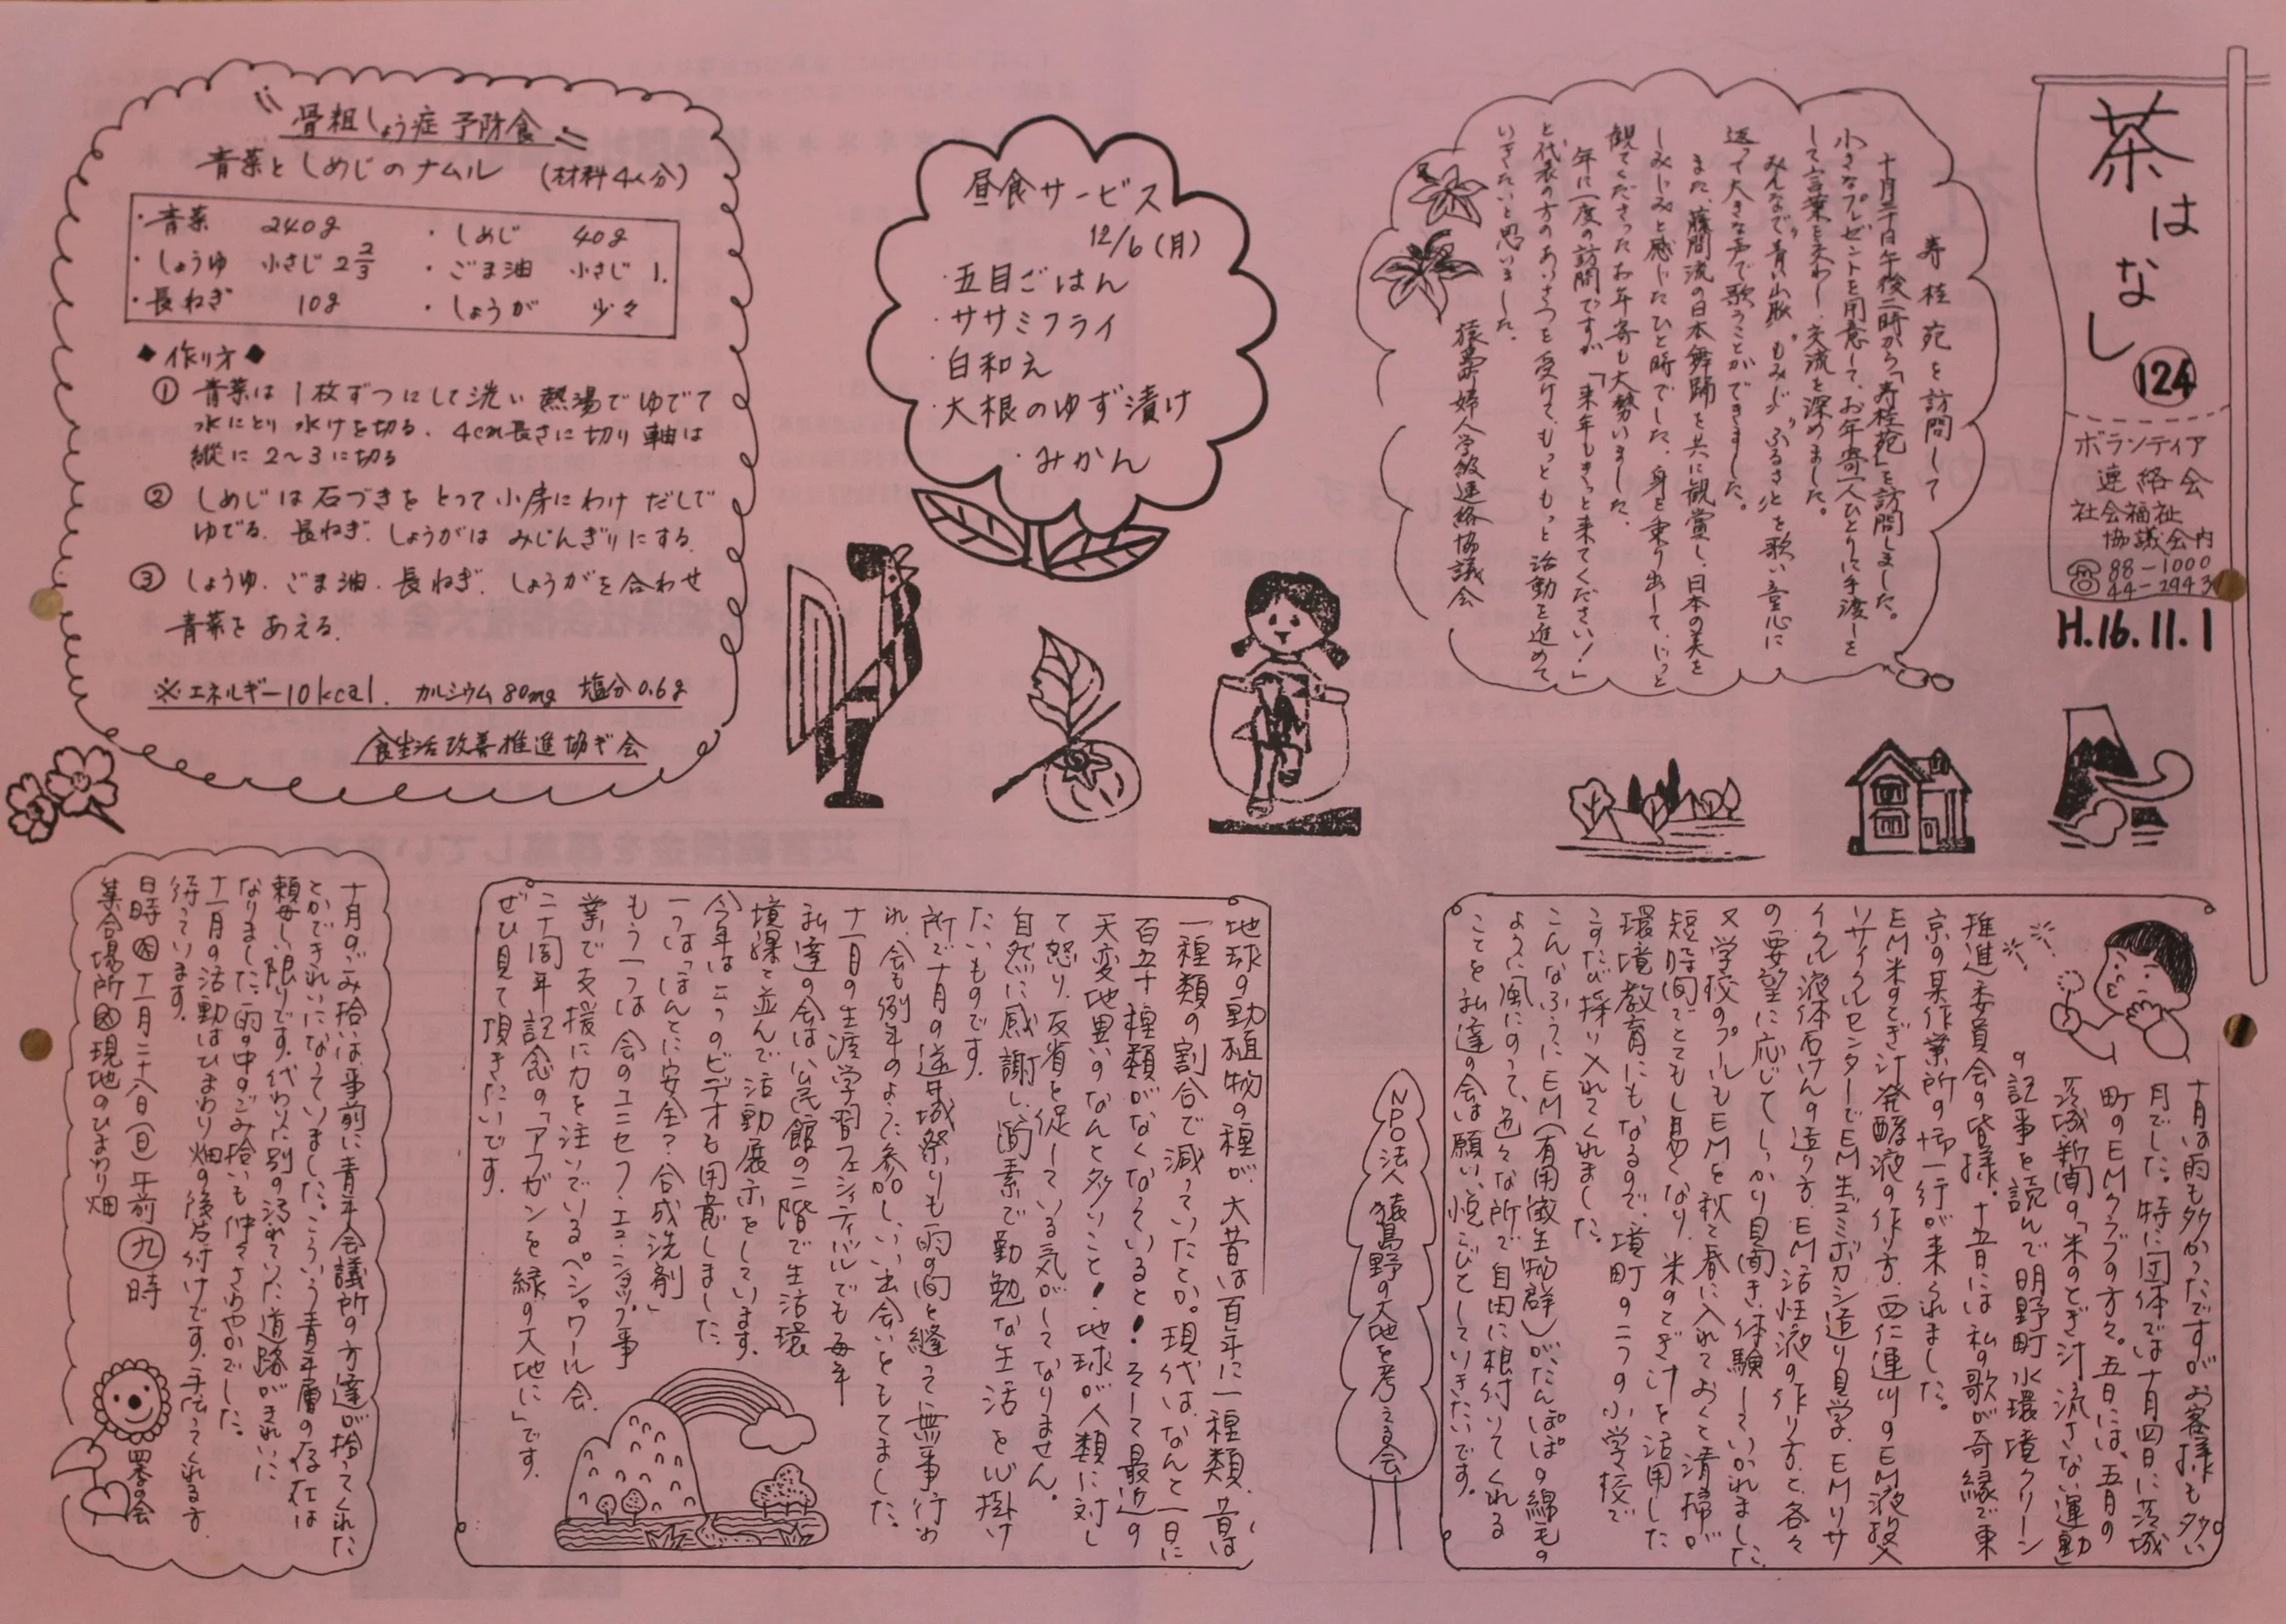 茶はなし 124
ボランティア
連絡会
社会福祉
協議会内
☎ 88-1000
44-2943
H.16.11.1
寿桂苑を訪問して
十月二十日午後二時から「寿桂苑」を訪問しました。
小さなプレゼントを用意して、お年寄一人ひとりに手渡しを
して言葉を交わし、交流を深めました。
みんなで〃青い山脈〃もみじ〃ふるさと〃を歌い童心に
返って大きな声で歌うことができました。
また、藤間流の日本舞踊を共に観賞し、日本の美を
しみじみと感じたひと時でした。身を乗り出して、じっと
観てくださったお年寄も大勢いました。
年に一度の訪問ですが「来年もきっと来てください!」
と代表の方のあいさつを受けて、もっともっと活動を進めて
いきたいと思いました。
猿島町婦人学級連絡協議会
昼食サービス
12/6(月)
・五目ごはん
・ササミフライ
・白和え
・大根のゆず漬け
・みかん
骨粗しょう症予防食
青菜としめじのナムル (材料4人分)
・青菜 240g ・しめじ 40g
・しょうゆ 小さじ2 2/3 ・ごま油 小さじ1.
・長ねぎ 10g ・しょうが 少々
◆作り方◆
① 青菜は1枚ずつにして洗い熱湯でゆでて
水にとり水けを切る.4cm長さに切り軸は
縦に2〜3に切る
② しめじは石づきをとって小房にわけだしで
ゆでる.長ねぎ.しょうがはみじんぎりにする.
③ しょうゆ.ごま油.長ねぎ.しょうがを合わせ
青菜をあえる.
※エネルギー10kcal. カルシウム80mg 塩分0.6g
食生活改善推進協ギ会
十月は雨も多かったですがお客様も多い
月でした。特に団体では十月四日に茨城
町のEMクラブの方々。五日には、五月の
茨城新聞の「米のとぎ汁流さない運動」
の記事を読んで明野町水環境クリーン
推進委員会の皆様。十五日には私の歌が奇縁で東
京の某作業所の御一行が来られました。
EM米のとぎ汁発酵液の作り方、西仁連川のEM液投入
リサイクルセンターでEM生ゴミボカシ造り見学、EMリサ
イクル液体石けんの造り方、EM活性液の作り方と、各々
の要望に応じてしっかり見聞き、体験していかれました。
又、学校のプールもEMを秋と春に入れておくと清掃が
短時間でとてもし易くなり、米のとぎ汁を活用した
環境教育にもなるので、境町の二つの小学校で
このたび採り入れてくれました。
こんなふうにEM(有用微生物群)がたんぽぽの綿毛の
ように風にのって、色々な所で自由に根付いてくれる
ことを私達の会は願い、悦こびとしていきたいです。
NPO法人 猿島野の大地を考える会
地球の動植物の種が、大昔は百年に一種類、昔は
一種類の割合で減っていたとか。現代は、なんと一日に
百五十種類がなくなっていると!そして最近の
天変地異のなんと多いこと!地球が人類に対し
て怒り、反省を促している気がしてなりません。
自然に感謝し、簡素で勤勉な生活を心掛け
たいものです。
所で十月の逆井城祭りも雨の間を縫って無事行わ
れ、会も例年のように参加し、いい出会いをもてました。
十一月の生涯学習フェスティバルでも毎年
私達の会は公民館の二階で生活環
境課と並んで活動展示をしています。
今年は二つのビデオも用意しました。
一つは「ほんとに安全?合成洗剤」
もう一つは会のユニセフ・エコショップ事
業で支援に力を注いでいるペシャワール会.
二十周年記念の「アフガンを緑の大地に」です.
ぜひ見て頂きたいです.
十月のごみ拾いは、事前に青年会議所の方達が拾ってくれた
とかできれいになっていました。こういう青年層の存在は
頼もし限りです。代わりに別の汚れていた道路がきれいに
なりました。雨の中のごみ拾いも仲々さわやかでした。
十一月の活動はひまわり畑の後片付けです。手伝ってくれる方.
待っています。
日時 十一月二十八日(日)午前九時
集合場所 現地のひまわり畑
四季の会